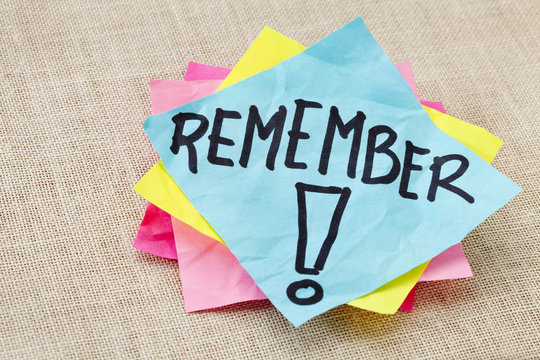 REMEMBER
!